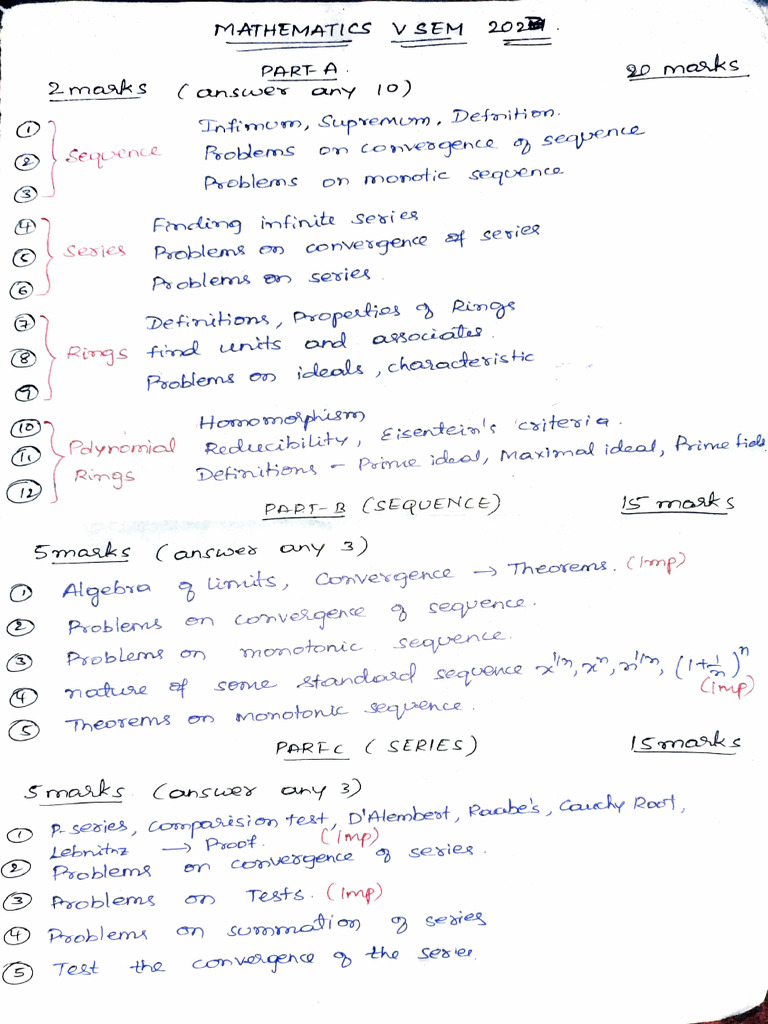 MATHEMATICS V SEM 202
PART-A. 20 marks
2 marks (answer any 10)
① Infimum, Supremum, Defnition.
② Sequence Problems on convergence of sequence
③ Problems on monotic sequence
④ Finding infinite series
⑤ Series Problems on convergence of series
⑥ Problems on series.
⑦ Definitions, Properties of Rings
⑧ Rings find units and associates.
⑨ Problems on ideals, characteristic
⑩ Homomorphism
⑪ Polynomial Reducibility, Eisentein's criteria.
⑫ Rings Definitions - Prime ideal, Maximal ideal, Prime field
PART-B (SEQUENCE) 15 marks
5 marks (answer any 3)
① Algebra of limits, Convergence → Theorems. (Imp)
② Problems on convergence of sequence.
③ Problems on monotonic sequence.
④ nature of some standard sequence x^1/n, x^n, n^1/n, (1+1/n)^n
(imp)
⑤ Theorems on monotonic sequence.
PART-C (SERIES) 15 marks
5 marks (answer any 3)
① P-series, comparision test, D'Alembert, Raabe's, Cauchy Root,
Lebnitnz → Proof. (Imp)
② Problems on convergence of series.
③ Problems on Tests. (Imp)
④ Problems on summation of series
⑤ Test the convergence of the series.